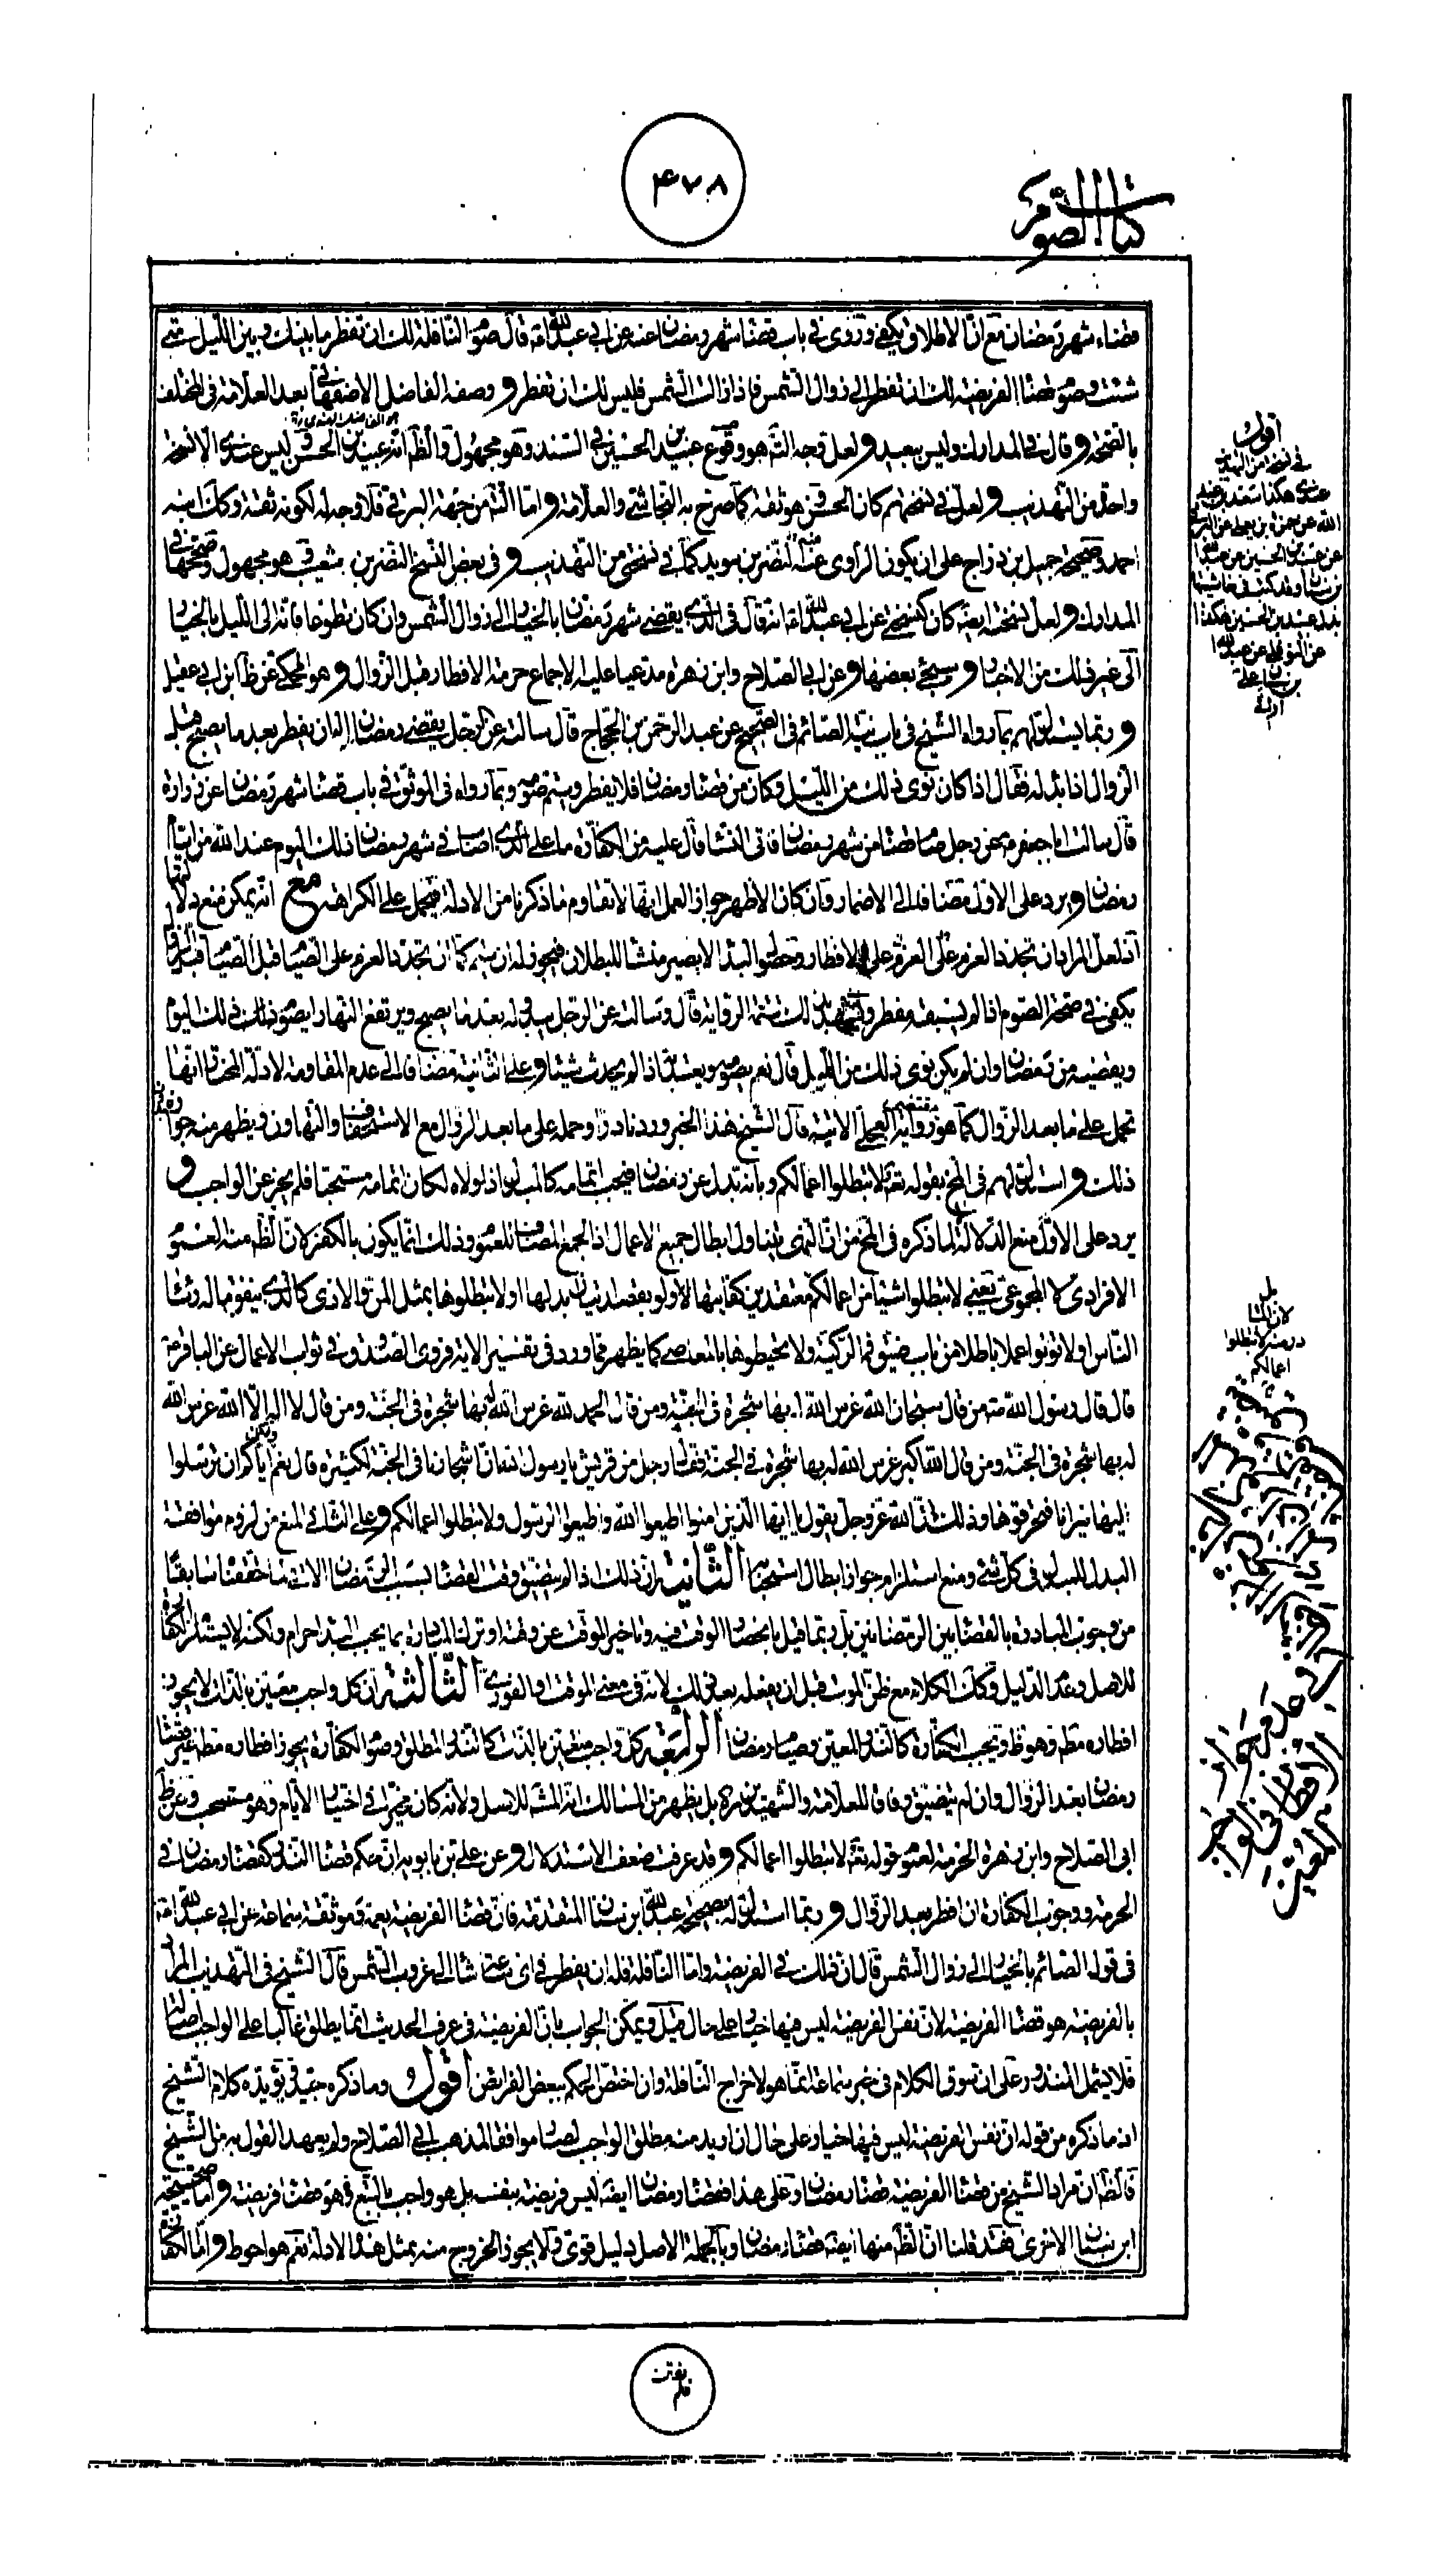 ۴۷۸
كتاب الصوم
قضاء شهر رمضان مع ان الاطلاق يكفي وروى في باب قضاء شهر رمضان عنه عن ابي عبد الله ع انه قال صوم النافلة لك ان تفطر ما بينك وبين الليل متى
شئت وصوم قضاء الفريضة لك ان تفطر الى زوال الشمس فاذا زالت الشمس فليس لك ان تفطر و وصفه الفاضل الاصفهاني بعد العلامة في المختلف
بالصحة و قال في المدارك وليس ببعيد و لعل وجه التام هو وقوع عبيد بن الحسين في السند وهو مجهول والظ انه عبيد بن الحسن ليس عندي الا نسخة
واحدة من التهذيب و لعل في نسختهم كان الحسن وهو ثقة كما صرح به النجاشي والعلامة و اما التام من جهة البرقي فلا وجه له لكونه ثقة وكك ابنه
احمد وصحيحة جميل بن دراج على ان يكون الراوي عنه النضر بن سويد كما في نسختي من التهذيب و في بعض النسخ النضر بن شعيب هو مجهول وصححها في
المدارك و لعل نسخته ايضه كان كنسختي عن ابي عبد الله ع انه قال في الذي يقضي شهر رمضان بالخيار الى زوال الشمس وان كان تطوعا فانه الى الليل بالخيار
الى غير ذلك من الاخبار و سيجئ بعضها و عن ابي الصلاح وابن زهرة مدعيا عليه الاجماع حرمة الافطار قبل الزوال و هو المحكي عن ظ ابن ابي عقيل
و ربما يستدل لهم بما رواه الشيخ في باب نية الصائم في الصحيح عن عبد الرحمن بن الحجاج قال سالته عن الرجل يقضي رمضان اله ان يفطر بعد ما يصبح قبل
الزوال اذا بدا له فقال اذا كان نوى ذلك من الليل وكان من قضاء رمضان فلا يفطر ويتم صومه وبما رواه في الموثق في باب قضاء شهر رمضان عن زرارة
قال سالت ابا جعفر ع عن رجل صام قضاء من شهر رمضان فاتى النساء قال عليه من الكفارة ما على الذي اصاب في شهر رمضان ذلك اليوم عند الله من ايام
رمضان و يرد على الاول مضافا الى الاضمار وان كان الاظهر جواز العمل بها لا تقاوم ما ذكرنا من الادلة فيحمل على الكراهة مع انه يمكن منع دلالتها
اذ لعل المراد ان تجدد العزم على العزم على الافطار وحصول البداء لا يصير منشا للبطلان فيجوز له ان يتم كما ان تجدد العزم على الصيام قبل
يكفي في صحة الصوم اذا لم يسبقه مفطر ويشهد بذلك تتمة الرواية قال وسالته عن الرجل يبدو له بعد ما يصبح ويرتفع النهار ايصوم ذلك اليوم
ويقضيه من رمضان وان لم يكن نوى ذلك من الليل قال نعم يصومه ويعتد به اذا لم يحدث شيئا و على الثانية مضافا الى عدم المقاومة لادلة المختار انها
تحمل على ما بعد الزوال كما هو مقتضى رواية العجلي الاتية قال الشيخ هذا الخبر ورد نادرا وحمله على ما بعد الزوال مع الاستخفاف والتهاون ويظهر منه جواز
ذلك و استدل لهم في المخ بقوله تع لا تبطلوا اعمالكم وبانه بدل عن رمضان فيجب اتمامه كالمبدل اذ لولاه لكان اتمامه مستحبا فلم يجز عن الواجب و
يرد على الاول منع الدلالة لما ذكره في المخ من ان النهي يتناول ابطال جميع الاعمال اذ الجمع المضاف للعموم وذلك انما يكون بالكفر لان الظ منه العموم
الافرادي لا المجموعي يعني لا تبطلوا شيئا من اعمالكم معتقدين كفايتها ولو بقصد اتيان بدلها او لا تبطلوها بمثل المن والاذى كالذي ينفق ماله رئاء
الناس اولا توتوا عملا باطلا من باب ضيق فم الركية ولا تحبطوها بالمعاصي كما يظهر مما ورد في تفسير الاية فروى الصدوق في ثواب الاعمال عن الباقر ع
قال قال رسول الله ص من قال سبحان الله غرس الله له بها شجرة في الجنة ومن قال الحمد لله غرس الله له بها شجرة في الجنة ومن قال لا اله الا الله غرس الله
له بها شجرة في الجنة ومن قال الله اكبر غرس الله له بها شجرة في الجنة فقال رجل من قريش يا رسول الله ان شجرنا في الجنة لكثيرة قال نعم ولكن اياكم ان ترسلوا
اليها نيرانا فتحرقوها وذلك ان الله عز وجل يقول يا ايها الذين امنوا اطيعوا الله واطيعوا الرسول ولا تبطلوا اعمالكم و على الثاني المنع من لزوم موافقة
البدل للمبدل في كل شئ ومنع استلزام جواز ابطال استحبابه الثانية ان ذلك اذا لم يتضيق وقت القضاء بسبب الرمضان الاتي لما حققنا سابقا
من وجوب المبادرة بالقضاء بين الرمضانين بل ربما قيل بانحصار الوقت فيه وتاخير الموقت عن وقته او ترك المبادرة بما يجب المبادرة حرام ولكنه لا يستلزم الكفارة
للاصل وعدم الدليل وكك الكلام مع ظن الموت قبل ان يفعله بعد ذلك لانه في معنى الموقت والفوري الثالثة ان كل واجب معين بالذات لا يجوز
افطاره مطه وهو ظ وتجب الكفارة كالنذر المعين وصيام رمضان الرابعة كل واجب غير معين بالذات كالنذر المطلق وصوم الكفارة يجوز افطاره مطه غير قضاء
رمضان بعد الزوال وان لم يتضيق وفاقا للعلامة والشهيدين وغيره بل يظهر من المسالك انه المش للاصل ولانه كان مخيرا في اختيار الايام وهو مستصحب وعن ظ
ابي الصلاح وابن زهرة الحرمة لعموم قوله تع لا تبطلوا اعمالكم و قد عرفت ضعف الاستدلال و عن علي بن بابويه ان حكم قضاء النذر كقضاء رمضان في
الحرمة ووجوب الكفارة ان افطر بعد الزوال و ربما استدل له بصحيحة عبد الله ابن سنان المتقدمة فان قضاء الفريضة يعمه وموثقة سماعة عن ابي عبد الله ع
في قوله الصائم بالخيار الى زوال الشمس قال ان ذلك في الفريضة واما النافلة فله ان يفطر في اي ساعة شاء الى غروب الشمس قال الشيخ في التهذيب المراد
بالفريضة هو قضاء الفريضة لان نفس الفريضة ليس فيها خيار على حال قيل ويمكن الجواب بان الفريضة في عرف الحديث انما يطلق غالبا على الواجب اصالة
فلا يشمل المنذور وعلى ان سوق الكلام في خبر سماعة انما هو لاخراج النافلة وان اختص الحكم ببعض الفرايض اقول وما ذكره جيد في تويده كلام الشيخ
اذ ما ذكره من قوله ان نفس الفريضة ليس فيها خيار على حال ان اريد منه مطلق الواجب لصار موافقا لمذهب ابي الصلاح ولم يعهد القول به من الشيخ
فالظ ان مراد الشيخ من قضاء الفريضة قضاء رمضان وعلى هذا فقضاء رمضان ايضه ليس فريضة بنفسه بل هو واجب بالتبع فهو قضاء فريضة و اما صحيحة
ابن سنان الاخرى فقد قلنا ان الظ منها ايضه قضاء رمضان وبالجملة الاصل دليل قوي ولا يجوز الخروج منه بمثل هذه الادلة نعم هو احوط و اما الكفارة
اقول
في نسخة من التهذيب
عندي هكذا سعد بن عبد
الله عن حمزة بن يعلى عن البرقي
عن عبيد بن الحسين عن عبد الله
بن سنان وقد كتب في حاشيتها
بدل عبيد بن الحسين هكذا
عن النوفلي عن عبد الله
بن سنان
لا تبطلوا
اعمالكم
في عدم جواز
الافطار في الواجب
المعين